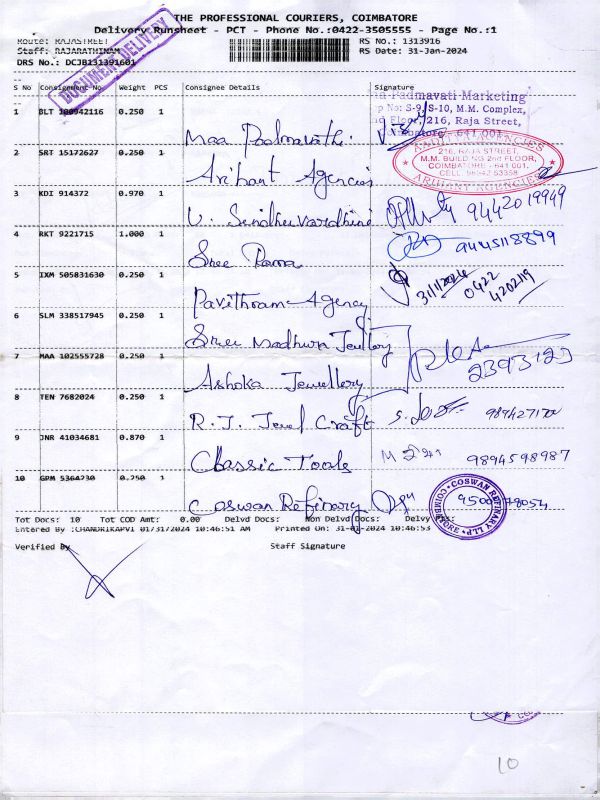 THE PROFESSIONAL COURIERS, COIMBATORE
Delivery Runsheet - PCT - Phone No.:0422-3505555 - Page No.:1
Route: RAJASTREET RS No.: 1313916
Staff: RAJARATHINAM RS Date: 31-Jan-2024
DRS No.: DCJB131391601
DOCUMENT DELIVERY
S No Consignment No Weight PCS Consignee Details Signature
Padmavati Marketing
No: S-9/S-10, M.M. Complex,
Floor, 216, Raja Street,
641 001
1 BLT 100942116 0.250 1 Maa Padmavathi
ARIHANT AGENCIES
216, RAJA STREET,
M.M. BUILDING 2nd FLOOR,
COIMBATORE - 641 001.
CELL: 98942 53358
ARIHANT AGENCIES
2 SRT 15172627 0.250 1 Arihant Agencies
3 KDI 914372 0.970 1 V. Sindhuvardhini 9442019949
4 RKT 9221715 1.000 1 Shree Rama 9445118899
5 IXM 505831630 0.250 1 Pavithram Agency 31/1/2024 0422 420219
6 SLM 338517945 0.250 1 Shree Madhura Jewllery
7 MAA 102555728 0.250 1 Ashoka Jewellery 2393123
8 TEN 7682024 0.250 1 R.J. Jewel Craft
9 JNR 41034681 0.870 1 Classic Tools 9894598987
10 GPM 5364230 0.250 1 Coswan Refinary
COSWAN REFINARY LLP
COIMBATORE
Tot Docs: 10 Tot COD Amt: 0.00 Delvd Docs: Non Delvd Docs: Delvy
Entered By :CHANDRIKAPVI 01/31/2024 10:46:51 AM Printed On: 31-01-2024 10:46:53
Verified By Staff Signature
10